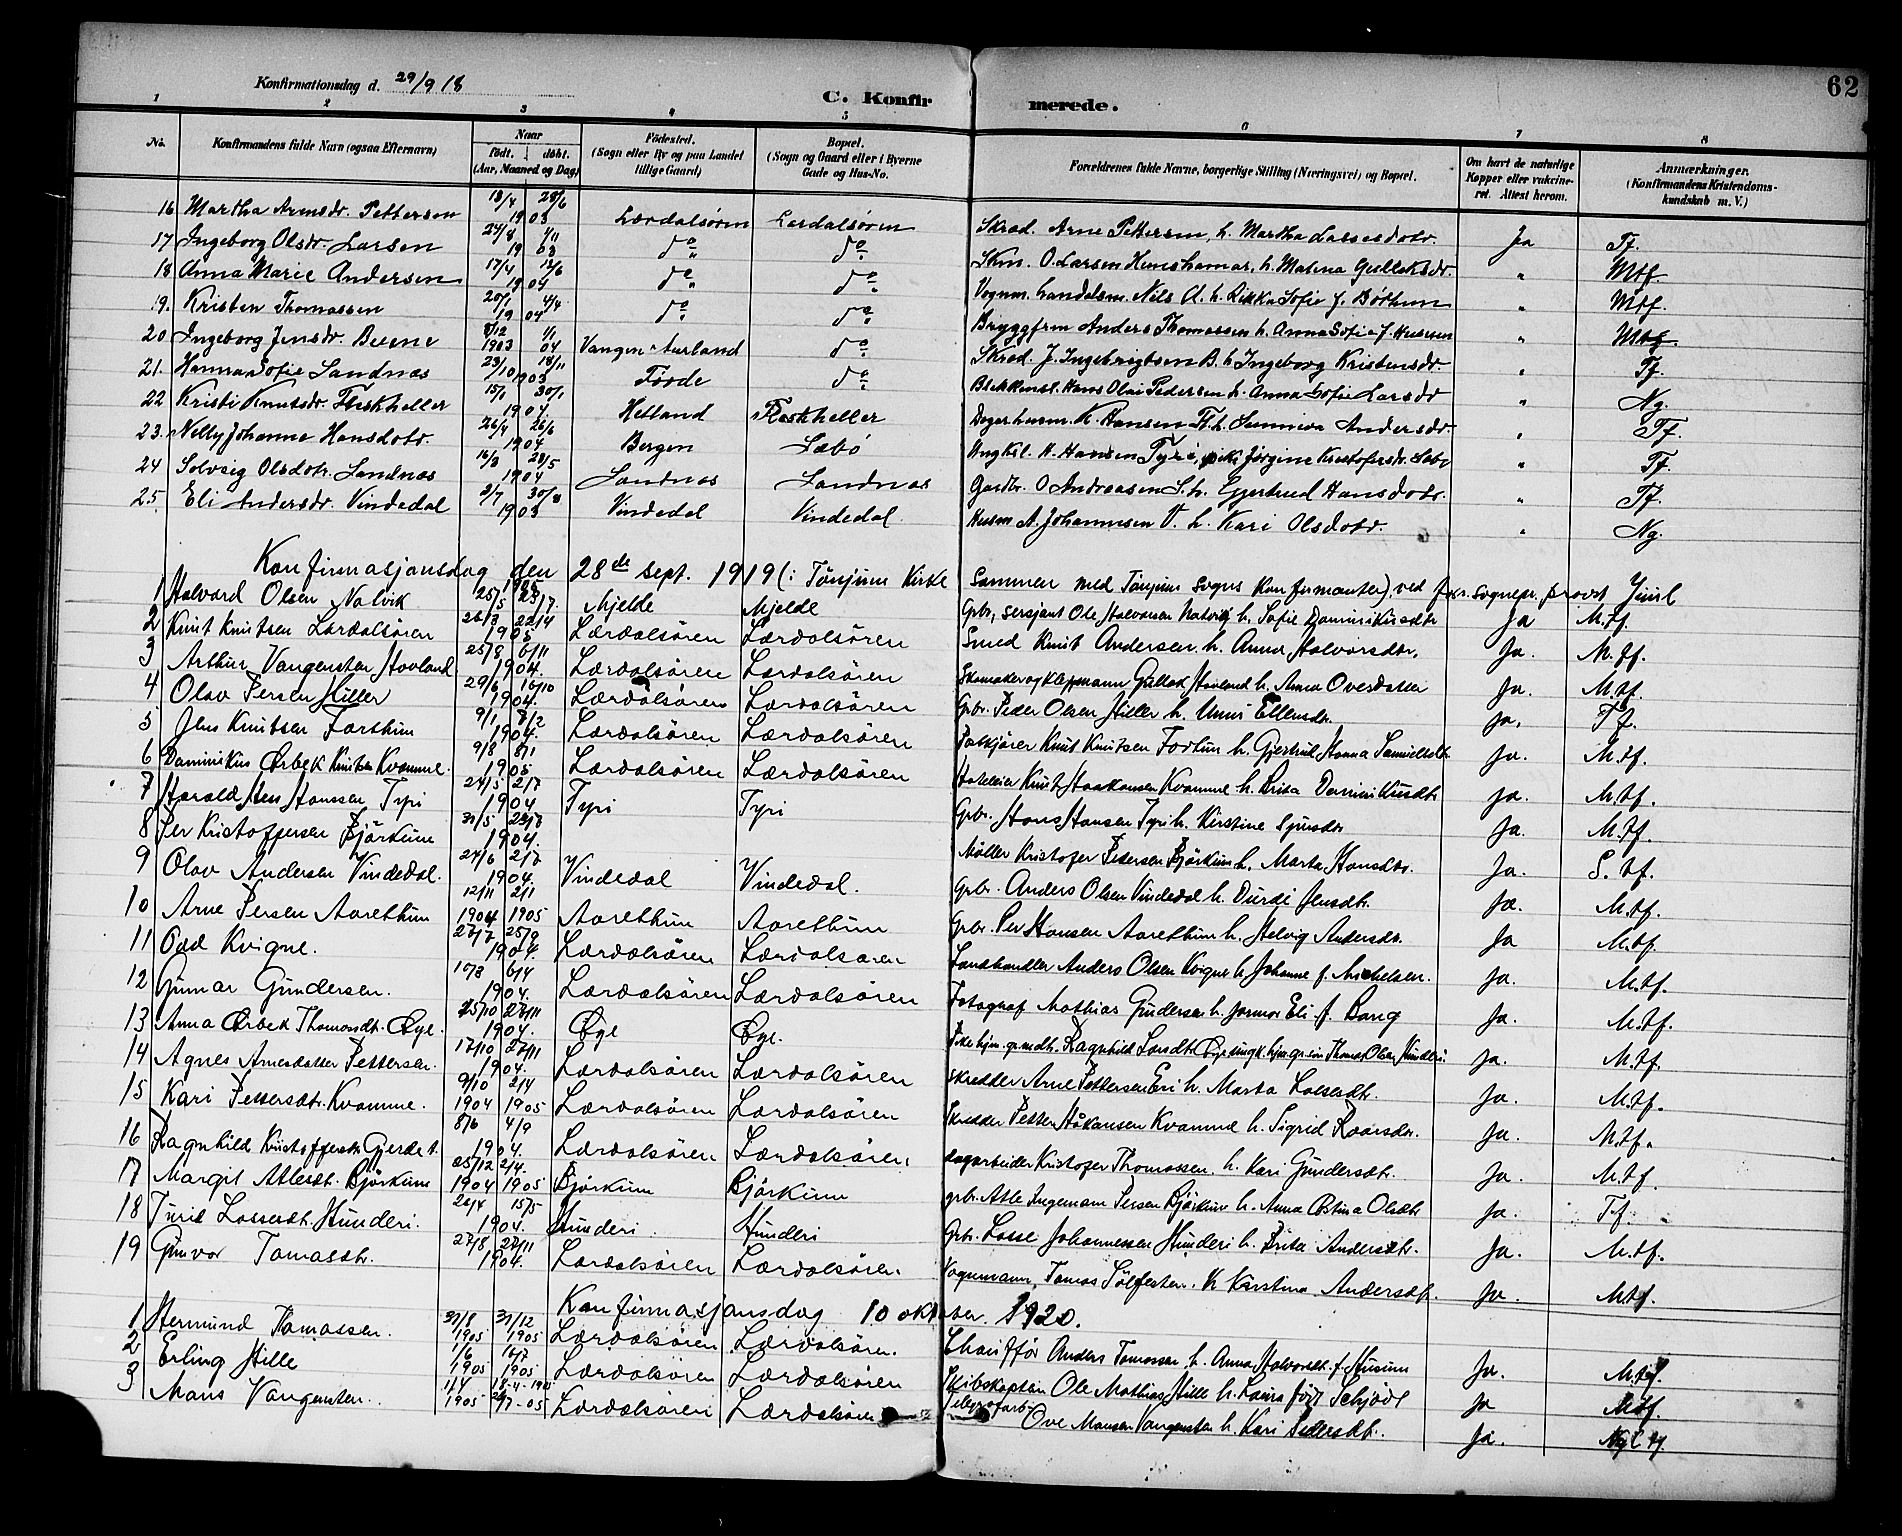 Konfirmationsdag d. 29/9 18
62
C. Konfirmerede.
1 2 3 4 5 6 7 8
No. Konfirmandens fulde Navn (ogsaa Efternavn) Naar født. døbt. (Aar, Maaned og Dag) Fødested. (Sogn eller By og paa Landet tillige Gaard) Bopæl. (Sogn og Gaard eller i Byerne Gade og Hus-No. Forældrenes fulde Navne, borgerlige Stilling (Næringsvei) og Bopæl. Om havt de naturlige Kopper eller vakcineret. Attest herom. Anmærkninger. (Konfirmandens Kristendomskundskab m. V.)
16 Martha Arnesdr. Pettersen 18/4 28/6 1903 Lærdalsøren Lærdalsøren Skræd. Arne Pettersen, h. Martha Lassesdotr. Ja Tf.
17 Ingeborg Olsdr. Larsen 24/8 1/11 1903 do do Skm. O. Larsen Hunshamar, h. Malena Gulleksdr. " Mtf.
18 Anna Marie Andersen 17/4 12/6 1904 do do Vognm. Landelsm. Nils A. h. Rikka Sofie f. Børhun " Mtf.
19. Kristen Thomassen 20/1 4/4 1904 do do Bryggfrm Anders Thomassen h. Anna Sofie f. Husum " Mtf.
20 Ingeborg Jensdr. 8/12 1903 1/1 04 Vangen Aurland do Skræd. J. Ingebrigtsen B. h. Ingeborg Kristensdr. " Tf.
21. Hanna Sofie Sandnæs 23/10 18/11 1903 Førde do Blikkensl. Hans Olai Pedersen h. Anna Sofie Larsdr " Ng.
22 Kristi Knutsdr. Flekkheller 15/1 30/1 1904. Hetland Flekkheller K. Hansen Fl. h. Sunniva Andersdr. " Tf.
23. Nelly Johanna Hansdotr. 26/4 26/6 1904 Bergen Læbø Ungkl. H. Hansen Tyri, pike Jørgine Kristofersdr. " Tf.
24 Solveig Olsdotr. Sandnæs 16/3 28/5 1904 Sandnæs Sandnæs Gardbr. O Andreasen S. h. Gjertrud Hansdotr. " Tf.
25. Eli Andersdr. Vindedal 2/7 30/8 1903 Vindedal Vindedal. Husm A. Johannesen V. h. Kari Olsdotr. " Ng.
Konfirmasjonsdag den 28de sept. 1919 (: Tønjum Kirke sammen med Tønjum sogns konfirmanter) ved sognepr. provst Juul
1 Halvard Olsen Natvik 25/5 23/7 1905 Mjelde Mjelde Grbr, sersjant Ole Halvorsen Natvig h. Sofie Dominikusdtr Ja M.tf.
2 Knut Knutsen Lærdalsören 26/3 22/4 1905 Lærdalsören Lærdalsören Smed Knut Andersen h. Anna Halvorsdtr. Ja. M.tf.
3 Arthur Vangensten Hovland 25/8 6/11 1904. Lærdalsören Lærdalsören Skomaker og Klippmann Gullak Hovland h. Anna Ovesdatter Ja. M.tf.
4 Olav Persen Hiller 29/6 16/10 1904. Lærdalsören Lærdalsören Grbr. Peder Olsen Hiller h. Unni Ellensdr. Ja. Tf.
5 Jens Knutsen Forthun 9/1 7/2 1904. Lærdalsören Lærdalsören Knut Knutsen Forthun h. Gjertrud Hanna Samuelsdt. Ja. M.tf.
6 Dominikus Ørbek Knutsen Kvamme. 9/8 8/1 1905 Lærdalsören Lærdalsören Hotelleier Knut Haakonsen Kvamme h. Brita Dominikusdtr Ja. M.tf.
7 Harald Hans Hanssen Tyri 24/5 2/7 1904 Tyri Tyri Grbr. Hans Hansen Tyri h. Kirstine Sjursdtr Ja. M.tf.
8 Per Kristoffersen Björkum 31/5 1904. Møller Kristofer Pedersen Björkum h. Marta Hansdtr. Ja. S.tf.
9 Olav Andersen Vindedal. 24/6 2/7 1904. Vindedal Vindedal. Grbr. Anders Olsen Vindedal h. Durdi Jensdtr. Ja. M.tf.
10 Arne Persen Aarethun 12/11 2/1 1904 1905 Aarethun Aarethun Grbr. Per Hansen Aarethun h. Helvig Andersdtr. Ja M.tf.
11 Odd Kvigne. 27/7 25/9 1904. Lærdalsören Lærdalsören Landhandler Anders Olsen Kvigne h. Johanne f. Michelsen. Ja. M.tf.
12 Gunnar Gundersen. 10/3 6/4 1904. Lærdalsören Lærdalsören Fotograf Mathias Gundersen h. Jormor Eli f. Bang Ja. M.tf.
13 Anna Ørbek Thomasdt. Øye. 25/10 27/11 1904. Øye Øye. Pike Ragnhild Larsdt. Øye ungk. Thomas Olsen Hunderi. Ja. M.tf.
14 Agnes Arnesdatter Pettersen. 17/10 27/11 1904. Lærdalsören Lærdalsören Skredder Arne Pettersen Eri h. Marta Lassesdtr. Ja. M.tf.
15 Kari Pettersdt. Kvamme. 9/10 2/4 1904 1905 Lærdalsören Lærdalsören Skredder Petter Håkonsen Kvamme h. Sigrid Roarsdtr. Ja. M.tf.
16 Ragnhild Kristoffersdtr Gjerdet. 8/6 4/9 1904. Lærdalsören Lærdalsören. dagarbeider Kristofer Thomassen. h. Kari Gundersdtr. Ja. M.tf.
17 Margit Atlesdt. Björkum 25/12 2/4. 1904 1905 Björkum Björkum grbr. Atle Ingemann Persen Björkum h. Anna Østina Olsdtr Ja. Tf.
18 Turid Lassesdt. Hunderi. 26/4 15/5 1904. Hunderi. Hunderi Grbr. Lasse Johannessen Hunderi h. Brita Andersdtr. Ja. M.tf.
19 Gunvor Tomasdtr. 27/8 27/11 1904. Lærdalsören Lærdalsören. Vognmann, Tomas Sölfesten. h. Kirstina Andersdt. Ja. M.tf.
Konfirmasjonsdag 10 oktober 1920.
1 Hermund Tomassen. 31/8 31/12 1905 1905 Lærdalsören Lærdalsören. Chauffør Anders Tomassen h. Anna Halvorsdt. f. Husum Ja. M.tf.
2 Erling Hille 1/6 16/7 1905 1905 Lærdalsören Lærdalsören Skibskaptein Ole Mathias Hille h. Laura født Schjødt Ja M.tf.
3 Mans Vangensten. 1/4 1905 Lærdalsören Lærdalsören Telegrafarb. Ove Monsen Vangensten h. Kari Pedersdt. Ja.